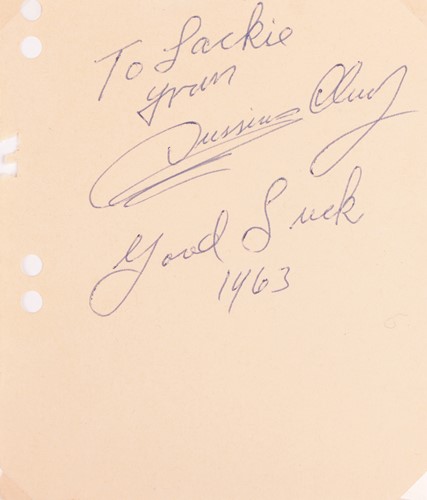 To Jackie
from
Cassius Clay
Good Luck
1963